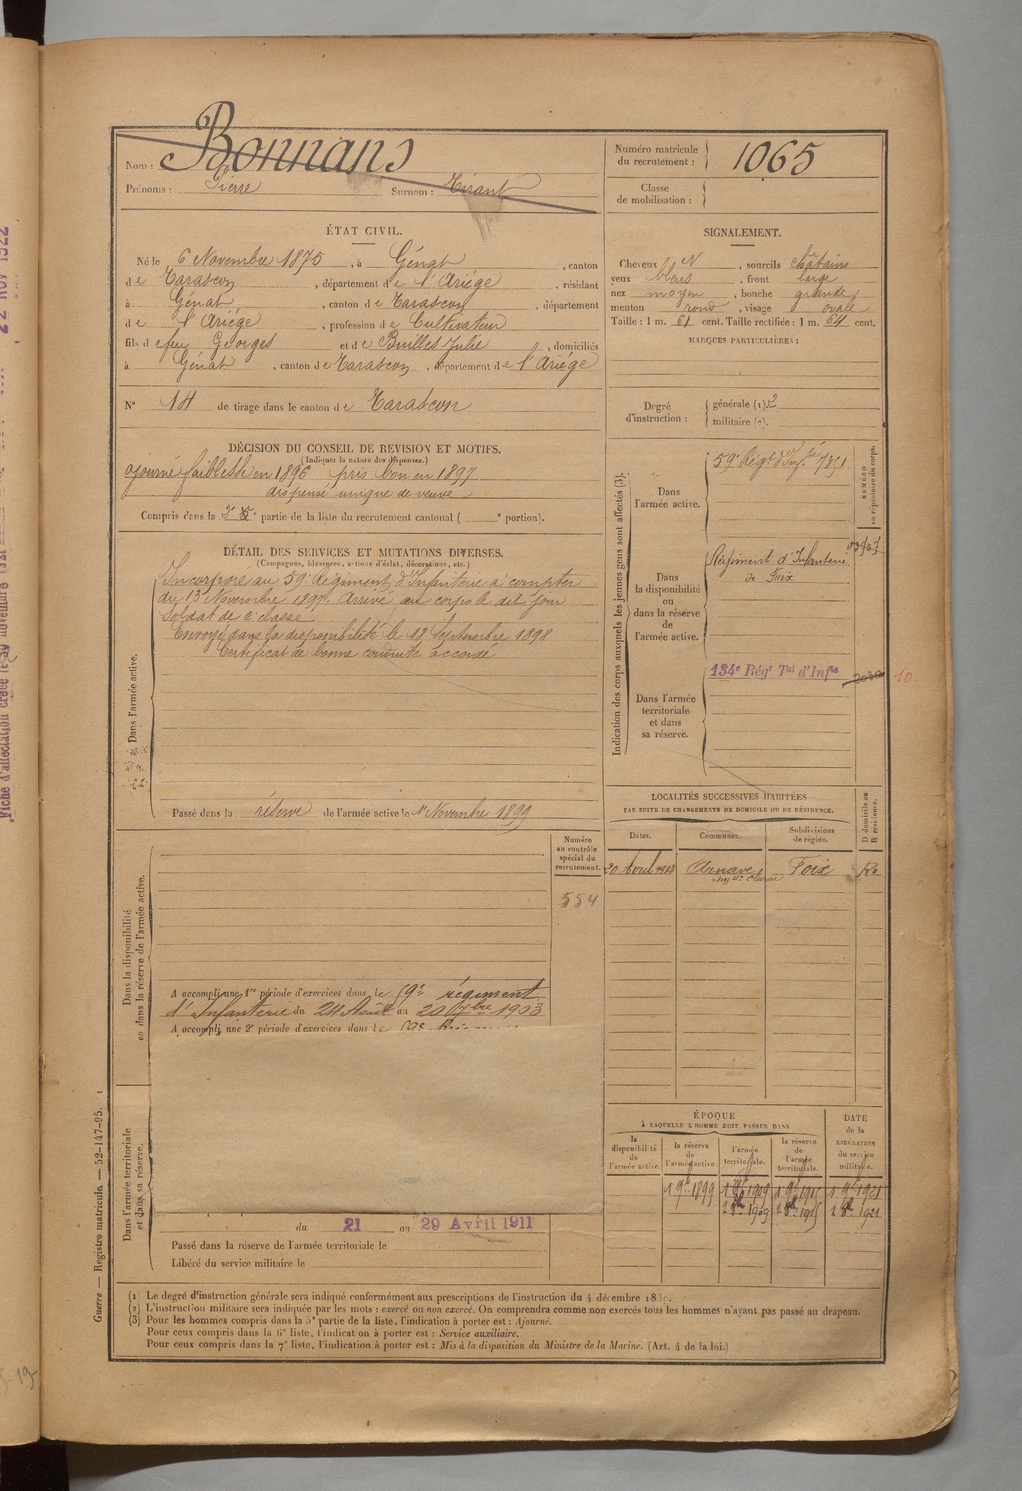 Nom : Bonnans
Prénoms : Pierre Surnom : Tirant
Numéro matricule du recrutement : 1065
Classe de mobilisation :
ÉTAT CIVIL.
Né le 6 Novembre 1875, à Génat, canton
de Tarascon, département de l'Ariége, résidant
à Génat, canton de Tarascon, département
de l'Ariége, profession de Cultivateur
fils de feu Georges et de Builles Julie, domiciliés
à Génat, canton de Tarascon, département de l'Ariége
N° 14 de tirage dans le canton de Tarascon
DÉCISION DU CONSEIL DE REVISION ET MOTIFS.
(Indiquer la nature des dispenses.)
ajourné faiblesse en 1896 pris bon en 1897
dispensé unique de veuve
Compris dans la 2e partie de la liste du recrutement cantonal ( e portion).
DÉTAIL DES SERVICES ET MUTATIONS DIVERSES.
(Campagnes, blessures, actions d'éclat, décorations, etc.)
Dans l'armée active.
Incorporé au 59e Régiment d'Infanterie à compter
du 13 Novembre 1897. Arrivé au corps le dit jour
soldat de 2e classe
Envoyé dans la disponibilité le 18 Septembre 1898
Certificat de bonne conduite accordé
Passé dans la réserve de l'armée active le 1er Novembre 1899
Numéro au contrôle spécial du recrutement.
554
Dans la disponibilité ou dans la réserve de l'armée active.
A accompli une 1re période d'exercices dans le 59e régiment
d'Infanterie du 24 Août au 20 7bre 1903
A accompli une 2e période d'exercices dans le 59e
Dans l'armée territoriale et dans sa réserve.
du 21 au 29 Avril 1911
Passé dans la réserve de l'armée territoriale le
Libéré du service militaire le
SIGNALEMENT.
Cheveux , sourcils châtains
yeux bleus, front large
nez moyen, bouche grande
menton rond, visage ovale
Taille : 1 m. 61 cent. Taille rectifiée : 1 m. 64 cent.
MARQUES PARTICULIÈRES :
Degré d'instruction : générale (1). 2
militaire (2).
Indication des corps auxquels les jeunes gens sont affectés (3).
NUMÉRO au répertoire du corps.
Dans l'armée active.
59e Régt d'Inf.rie 7351
Dans la disponibilité ou dans la réserve de l'armée active.
Régiment d'Infanterie
de Foix
Dans l'armée territoriale et dans sa réserve.
134e Régt Tal d'Infie
10.
LOCALITÉS SUCCESSIVES HABITÉES
PAR SUITE DE CHANGEMENTS DE DOMICILE OU DE RÉSIDENCE.
Dates. Communes. Subdivisions de région. D domicile ou R résidence.
20 Avril 1913 Arnave Foix Re
ÉPOQUE
À LAQUELLE L'HOMME DOIT PASSER DANS
la disponibilité de l'armée active. la réserve de l'armée active. l'armée territoriale. la réserve de l'armée territoriale. DATE de la LIBÉRATION du service militaire.
1 9bre 1899 1 9bre 1909 1 9bre 1915 1 9bre 1921
1 8bre 1909 1 8bre 1915 1 8bre 1921
(1) Le degré d'instruction générale sera indiqué conformément aux prescriptions de l'instruction du 4 décembre
(2) L'instruction militaire sera indiquée par les mots : exercé ou non exercé. On comprendra comme non exercés tous les hommes n'ayant pas passé au drapeau.
(3) Pour les hommes compris dans la 5e partie de la liste, l'indication à porter est : Ajourné.
Pour ceux compris dans la 6e liste, l'indication à porter est : Service auxiliaire.
Pour ceux compris dans la 7e liste, l'indication à porter est : Mis à la disposition du Ministre de la Marine. (Art. 4 de la loi.)
Guerre — Registre matricule. — 52-147-95. 1
22 NOV 1922